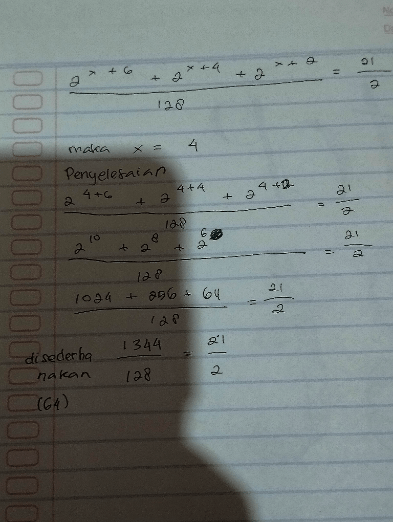 2^(x+6) + 2^(x+4) + 2^(x+2) / 128 = 21/2
maka x = 4
Penyelesaian
2^(4+6) + 2^(4+4) + 2^(4+2) / 128 = 21/2
2^10 + 2^8 + 2^6 / 128 = 21/2
1024 + 256 + 64 / 128 = 21/2
disederha 1344/128 = 21/2
nakan
(64)